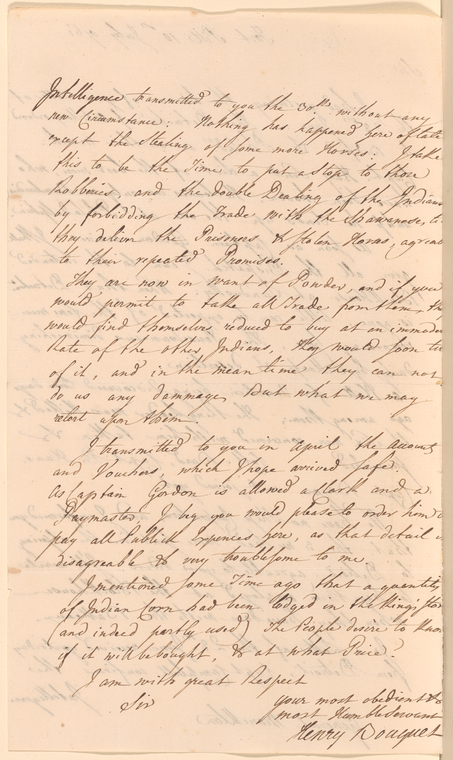 Intelligence transmitted to you the 30th without any
new Circumstance: Nothing has happened here of late
except the Stealing of some more Horses: I take
this to be the Time to put a Stop to those
Robberies, and the double Dealing of the Indians
by forbidding the Trade with the Shawanese, ti
they deliver the Prisoners & Stolen Horses, agreea
to their repeated Promises.
They are now in want of Powder, and if you
would permit to take all Trade from them, they
would find themselves reduced to buy at an immoder
Rate of the other Indians, They would soon tir
of it, and in the mean time they can not
do us any damage, But what we may
retort upon them.
I transmitted to you in April the Accounts
and Vouchers, which I hope arrived safe.
As Captain Gordon is allowed a Clark and a
Paymaster, I beg you would please to order him to
pay all Publick Expences here, as that detail is
disagreable & very troublesome to me.
I mentioned some Time ago that a quantity
of Indian Corn had been lodged in the Kings Store
(and indeed partly used) The People desire to know
if it will be bought, & at what Price?
I am with great Respect
Sir
your most obedient &
most Humble Servant
Henry Bouquet